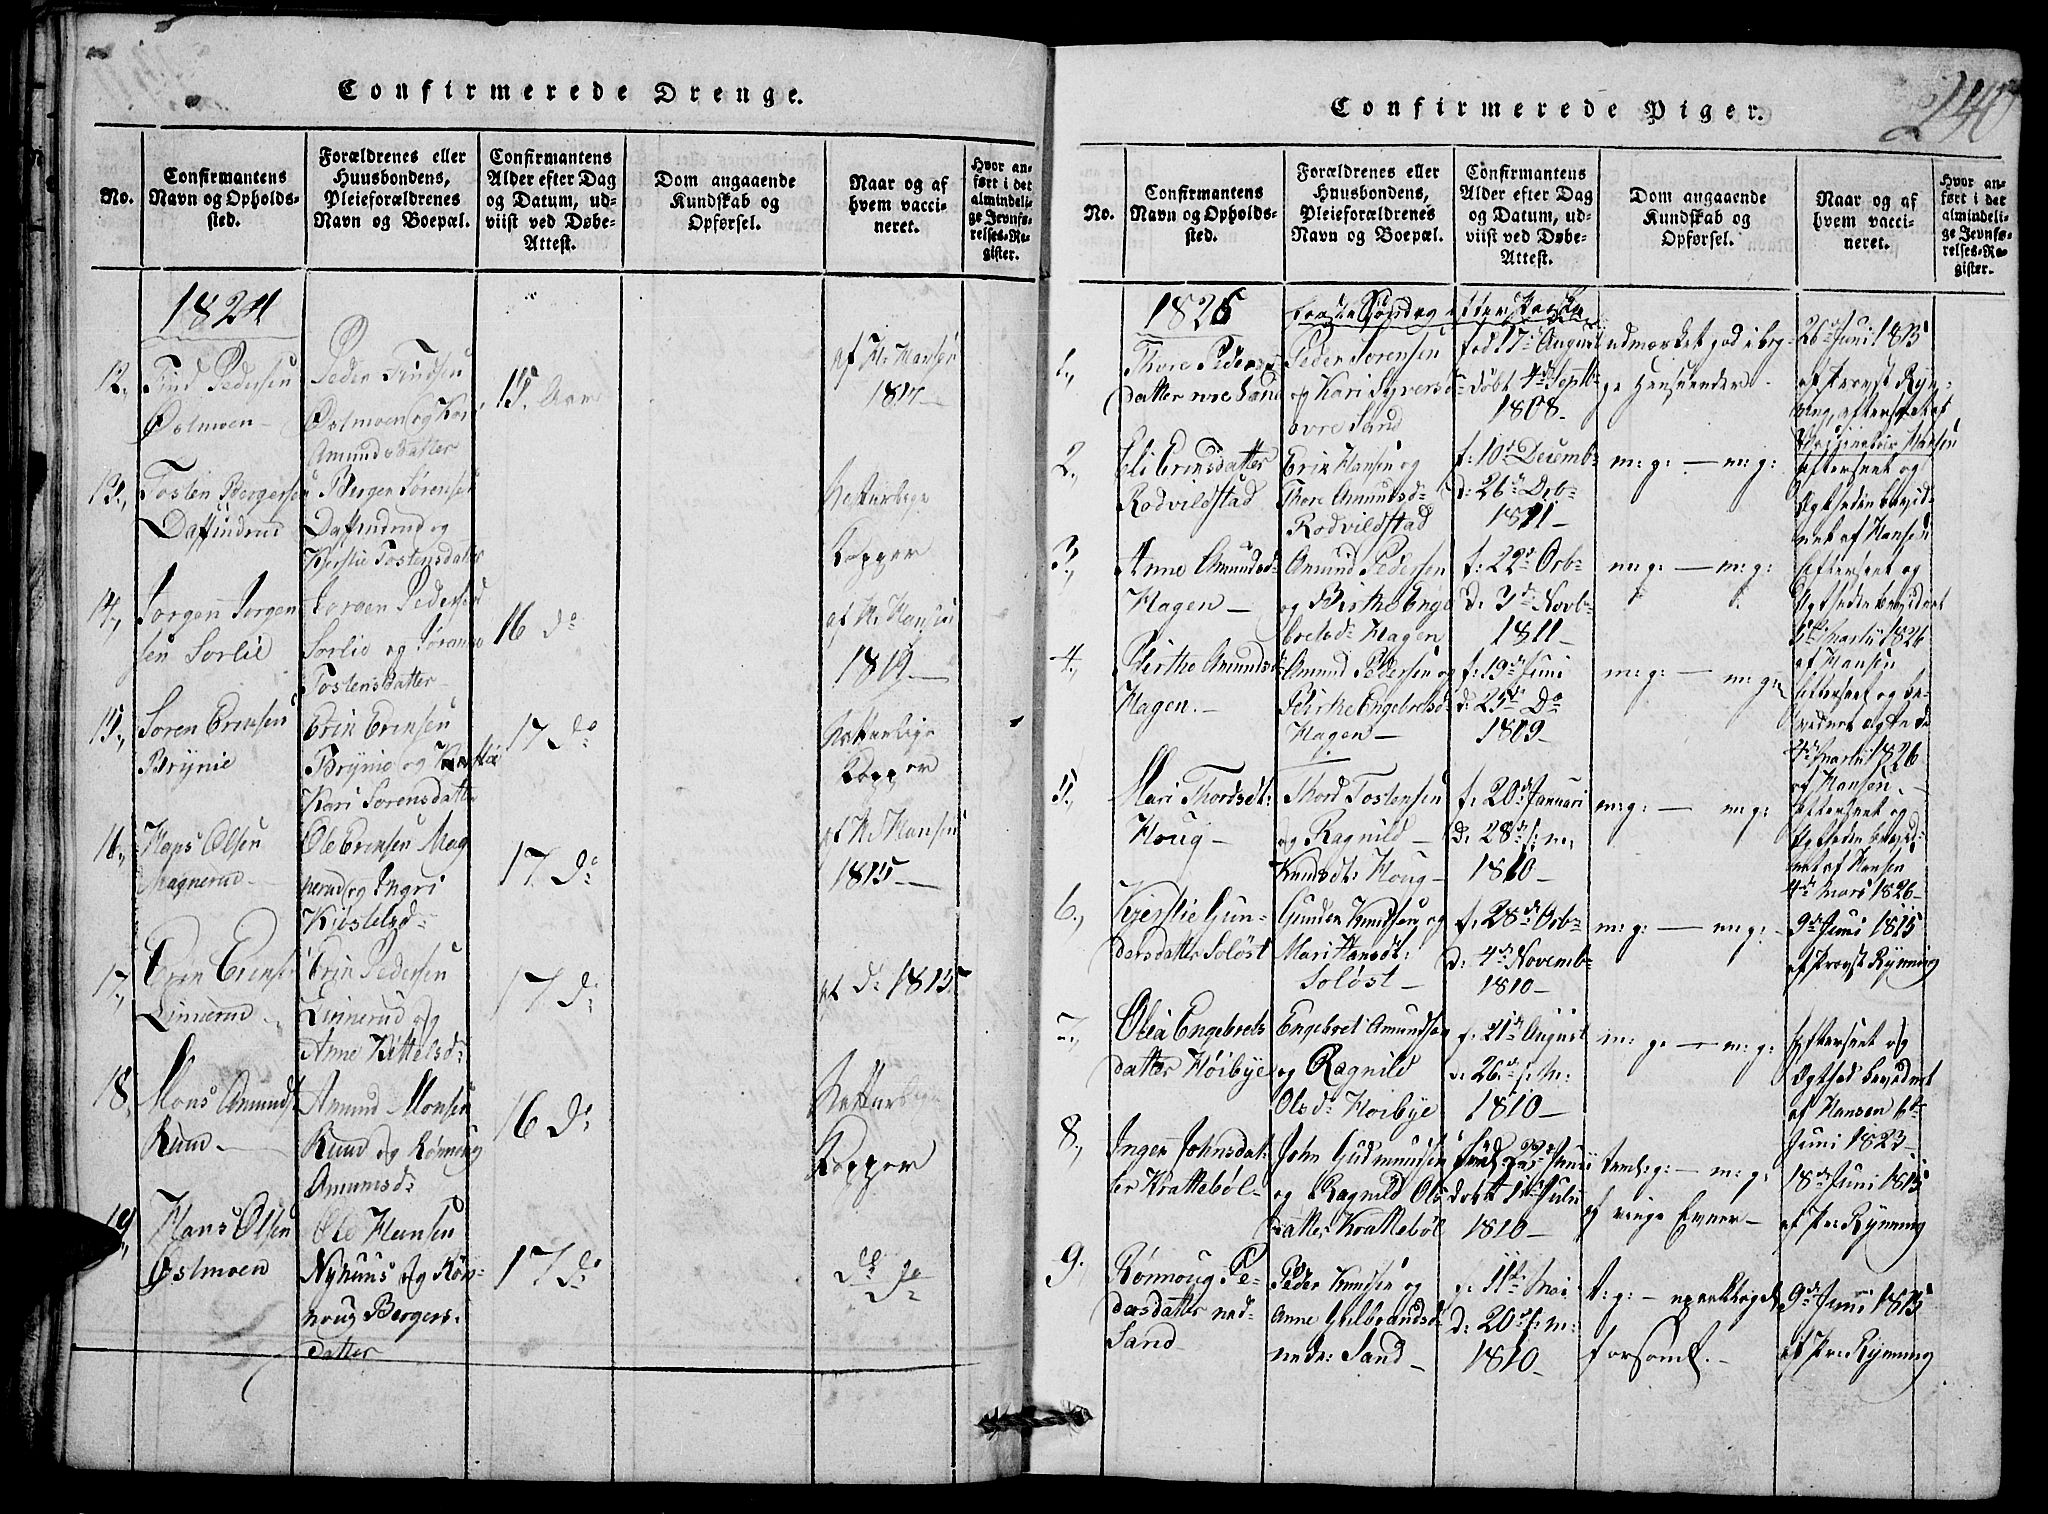 Confirmerede Drenge.
No.
Confirmantens
Navn og Opholds-
sted.
Forældrenes eller
Huusbondens,
Pleieforældrenes
Navn og Boepæl.
Confirmantens
Alder efter Dag
og Datum, ud-
viist ved Døbe-
Attest.
Dom angaaende
Kundskab og
Opførsel.
Naar og af
hvem vacci-
neret.
Hvor an-
ført i det
almindeli-
ge Jevnfø-
relses-Re-
gister.
1824
12.,
Find Pedersen
Ostmoen
Peder Findsen
Ostmoen og Kari
Amundsdatter
15. Aar
af Hr Hansen
1817
13.,
Tosten Bergersen
Daffindrud
Berger Sørensen
Daffindrud og
Kjerstie Tostensdatter
Kopper
14.,
Jørgen Jørgen
sen Sorlie
Jorgen Pedersen
Sorlie og
Tostensdatter
16 do
af Hr Hansen
1819.
15.,
Soren Erensen
Brynie
Eren Erensen
Brynie og
Kari Sorensdatter
17 do
Naturlige
Kopper
16.,
Hans Olsen
Magnerud
Ole Erensen Mag
nerud og Ingri
Kittelsd:
17. do
af Hr Hansen
1815
17.,
Eren Erensen
Linnerud
Eren Pedersen
Linnerud og
Anne Kittelsd:
17 do
af do 1815
18.
Mons Amunds
Ruud
Amund Monsen
Ruud og Rønnoug
Amundsd:
16 do
Kopper
19.,
Hans Olsen
Ostmoen
Ole Hansen
Nyhuus og Røn-
noug Bergers-
datter
17 do
do do
Confirmerede Piger.
240
No.
Confirmantens
Navn og Opholds-
sted.
Forældrenes eller
Huusbondens,
Pleieforældrenes
Navn og Boepæl.
Confirmantens
Alder efter Dag
og Datum, ud-
viist ved Døbe-
Attest.
Dom angaaende
Kundskab og
Opførsel.
Naar og af
hvem vacci-
neret.
Hvor an-
ført i det
almindeli-
ge Jevnfø-
relses-Re-
gister.
1826
første Søndag efter Paaske
1.,
Thore Peders
datter Sand
Peder Sorensen
og Kari Syversd
ovre Sand
fød 17de August
døbt 4de Septb
1808
udmærket god i beg-
ge Henseender
26de Juni 1815
af Provst Ryn-
ning, efterseet af
Vaccinateur Hansen
2.,
Eli Erensdatter
Rodvildstad
Eren Hansen og
Thore Amundsd
Rodvildstad
f: 10de Decemb
d: 26de Deb
1811
m: g: — m: g:
efterseet og
Ægtheden bevid-
net af Hansen
3.,
Anne Amundsd
Hagen
Amund Pedersen
og Birthe Enge
bretsd: Hagen
f: 22de Octb
d: 3de Novb
1811
m: g: — m: g:
efterseet og
Ægtheden bevidnet
Martii 1826
af Hansen
4.,
Birthe Amundsd
Hagen.
Amund Pedersen og
Birthe Engebretsd
Hagen
f: 19de Juni
d: 25de Do
1809
m: g: — m: g:
efterseet og be-
vidnet
4de Martii 1826
af Hansen
5.,
Mari Thordsdt:
Houg
Thord Tostensen
og Ragnild
Knudsdt: Houg
f: 20de Januari
d: 28de s: m.
1810
m: g: — m: g:
efterseet og
Ægtheden bevid-
net af Hansen
4de Mars 1826
6.,
Kjerstie Gun-
dersdatter Soløst
Gunder Knudsen og
Mari Hansdt:
Soløst
f: 28de Octb
d: 4de Novemb
1810
m: g: — m: g:
9de Juni 1815
af Provst Rynning
7.,
Olia Engebrets
datter Høibye
Engebret Amundsen
og Ragnild
Olsd: Hoibye
f: 21de August
d: 26de s: m:
1810
m: g: — m: g:
Efterseet og
Ægthed bevidnet
af Hansen 6te
Juni 1823
8.,
Inger Johnsdat-
ter Krattebøl
John Gudmundsen
og Ragnild Ols
datter Krattebøl
døbt 1ste Julii
1810
temlig: g: — m: g:
af ringe Evner
18de Juni 1815
af Pr: Rynning
9.
Rønnoug Pe-
dersdatter ned-
Sand
Peder Knudsen og
Anne Gulbrandsd
nedr: Sand
f. 11te Mai
d: 20de s: m:
1810
t: g: —
forsømt.
9de Juni 1815
af Pr: Rynning